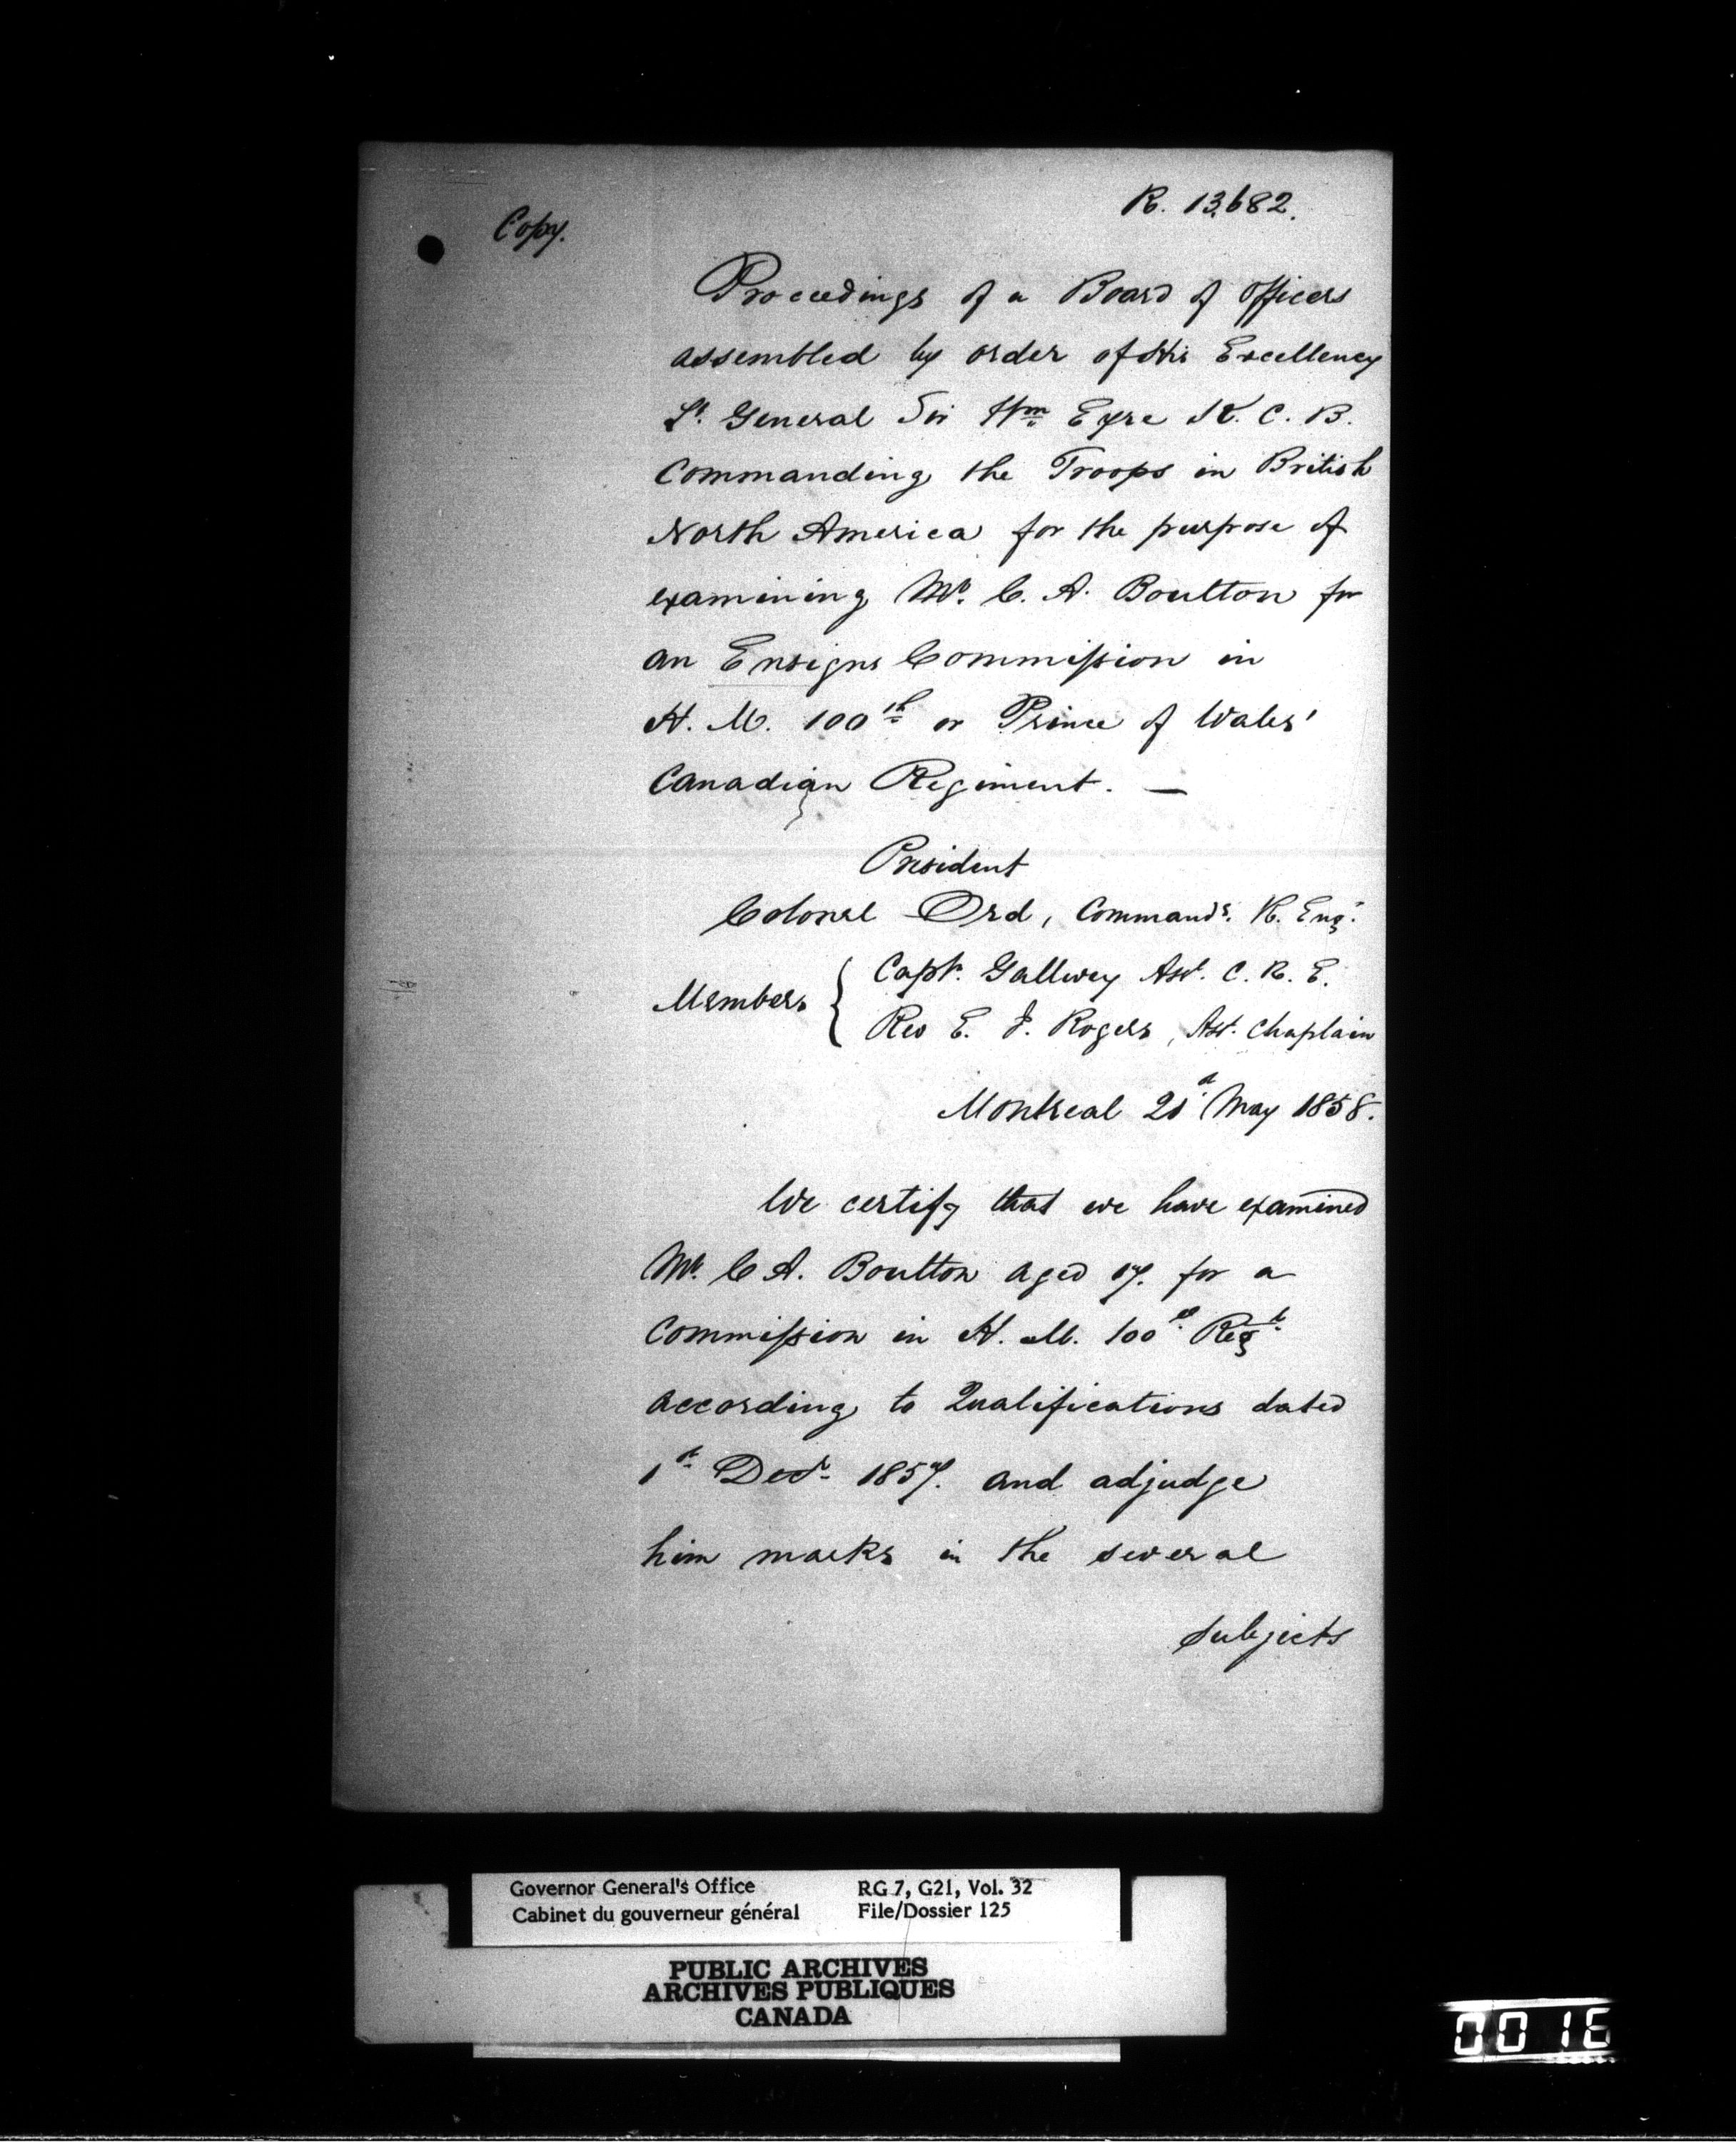 R. 13,682.
Copy.
Proceedings of a Board of Officers
assembled by order of His Excellency
Lt. General Sir Wm Eyre K. C. B.
Commanding the Troops in British
North America for the purpose of
examining Mr. C. A. Boulton for
an Ensigns Commission in
H. M. 100th or Prince of Wales'
Canadian Regiment. —
President
Colonel Ord, Commandg. R. Engs.
Members { Capt. Gallwey Asst. C. R. E.
Rev E. J. Rogers, Asst. Chaplain
Montreal May 1858.
We certify that we have examined
Mr. C A. Boulton aged 17. for a
Commission in H. M. 100th Regt.
according to Qualifications dated
1st Decr 1857. and adjudge
him marks in the several
subjects
Governor General's Office RG 7, G21, Vol. 32
Cabinet du gouverneur général File/Dossier 125
PUBLIC ARCHIVES
ARCHIVES PUBLIQUES
CANADA